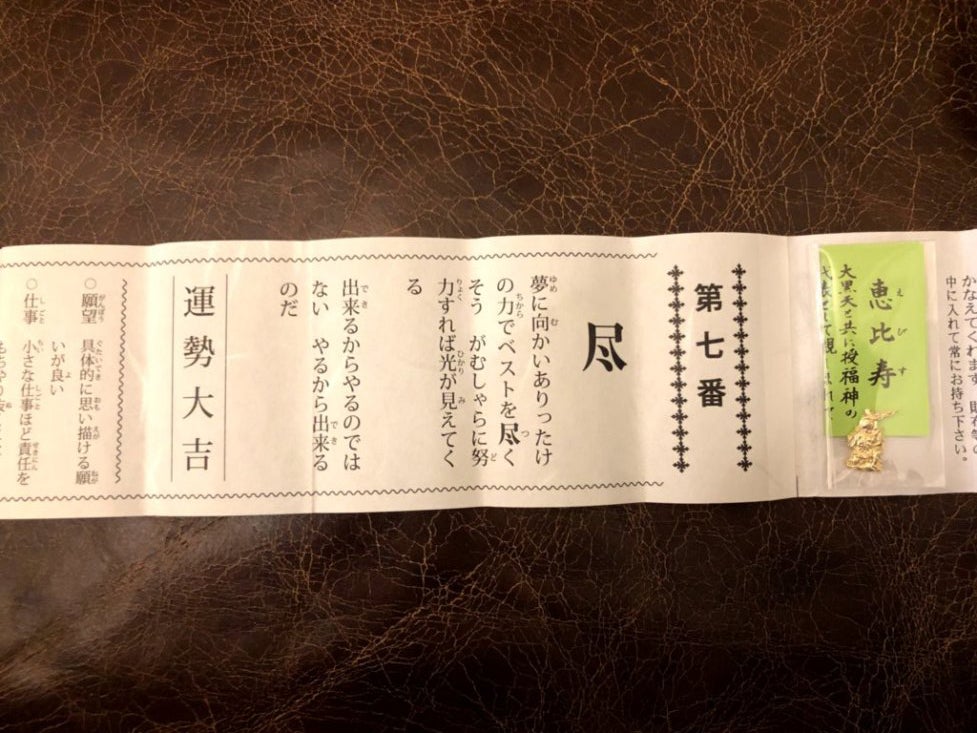 かなえてくれます 財布の
中に入れて常にお持ち下さい。
恵比寿
大黒天と共に授福神の
第七番
尽
夢に向かいありったけ
の力でベストを尽く
そう がむしゃらに努
力すれば光が見えてく
る
出来るからやるのでは
ない やるから出来る
のだ
運勢大吉
○願望 具体的に思い描ける願
いが良い
○仕事 小さな仕事ほど責任を